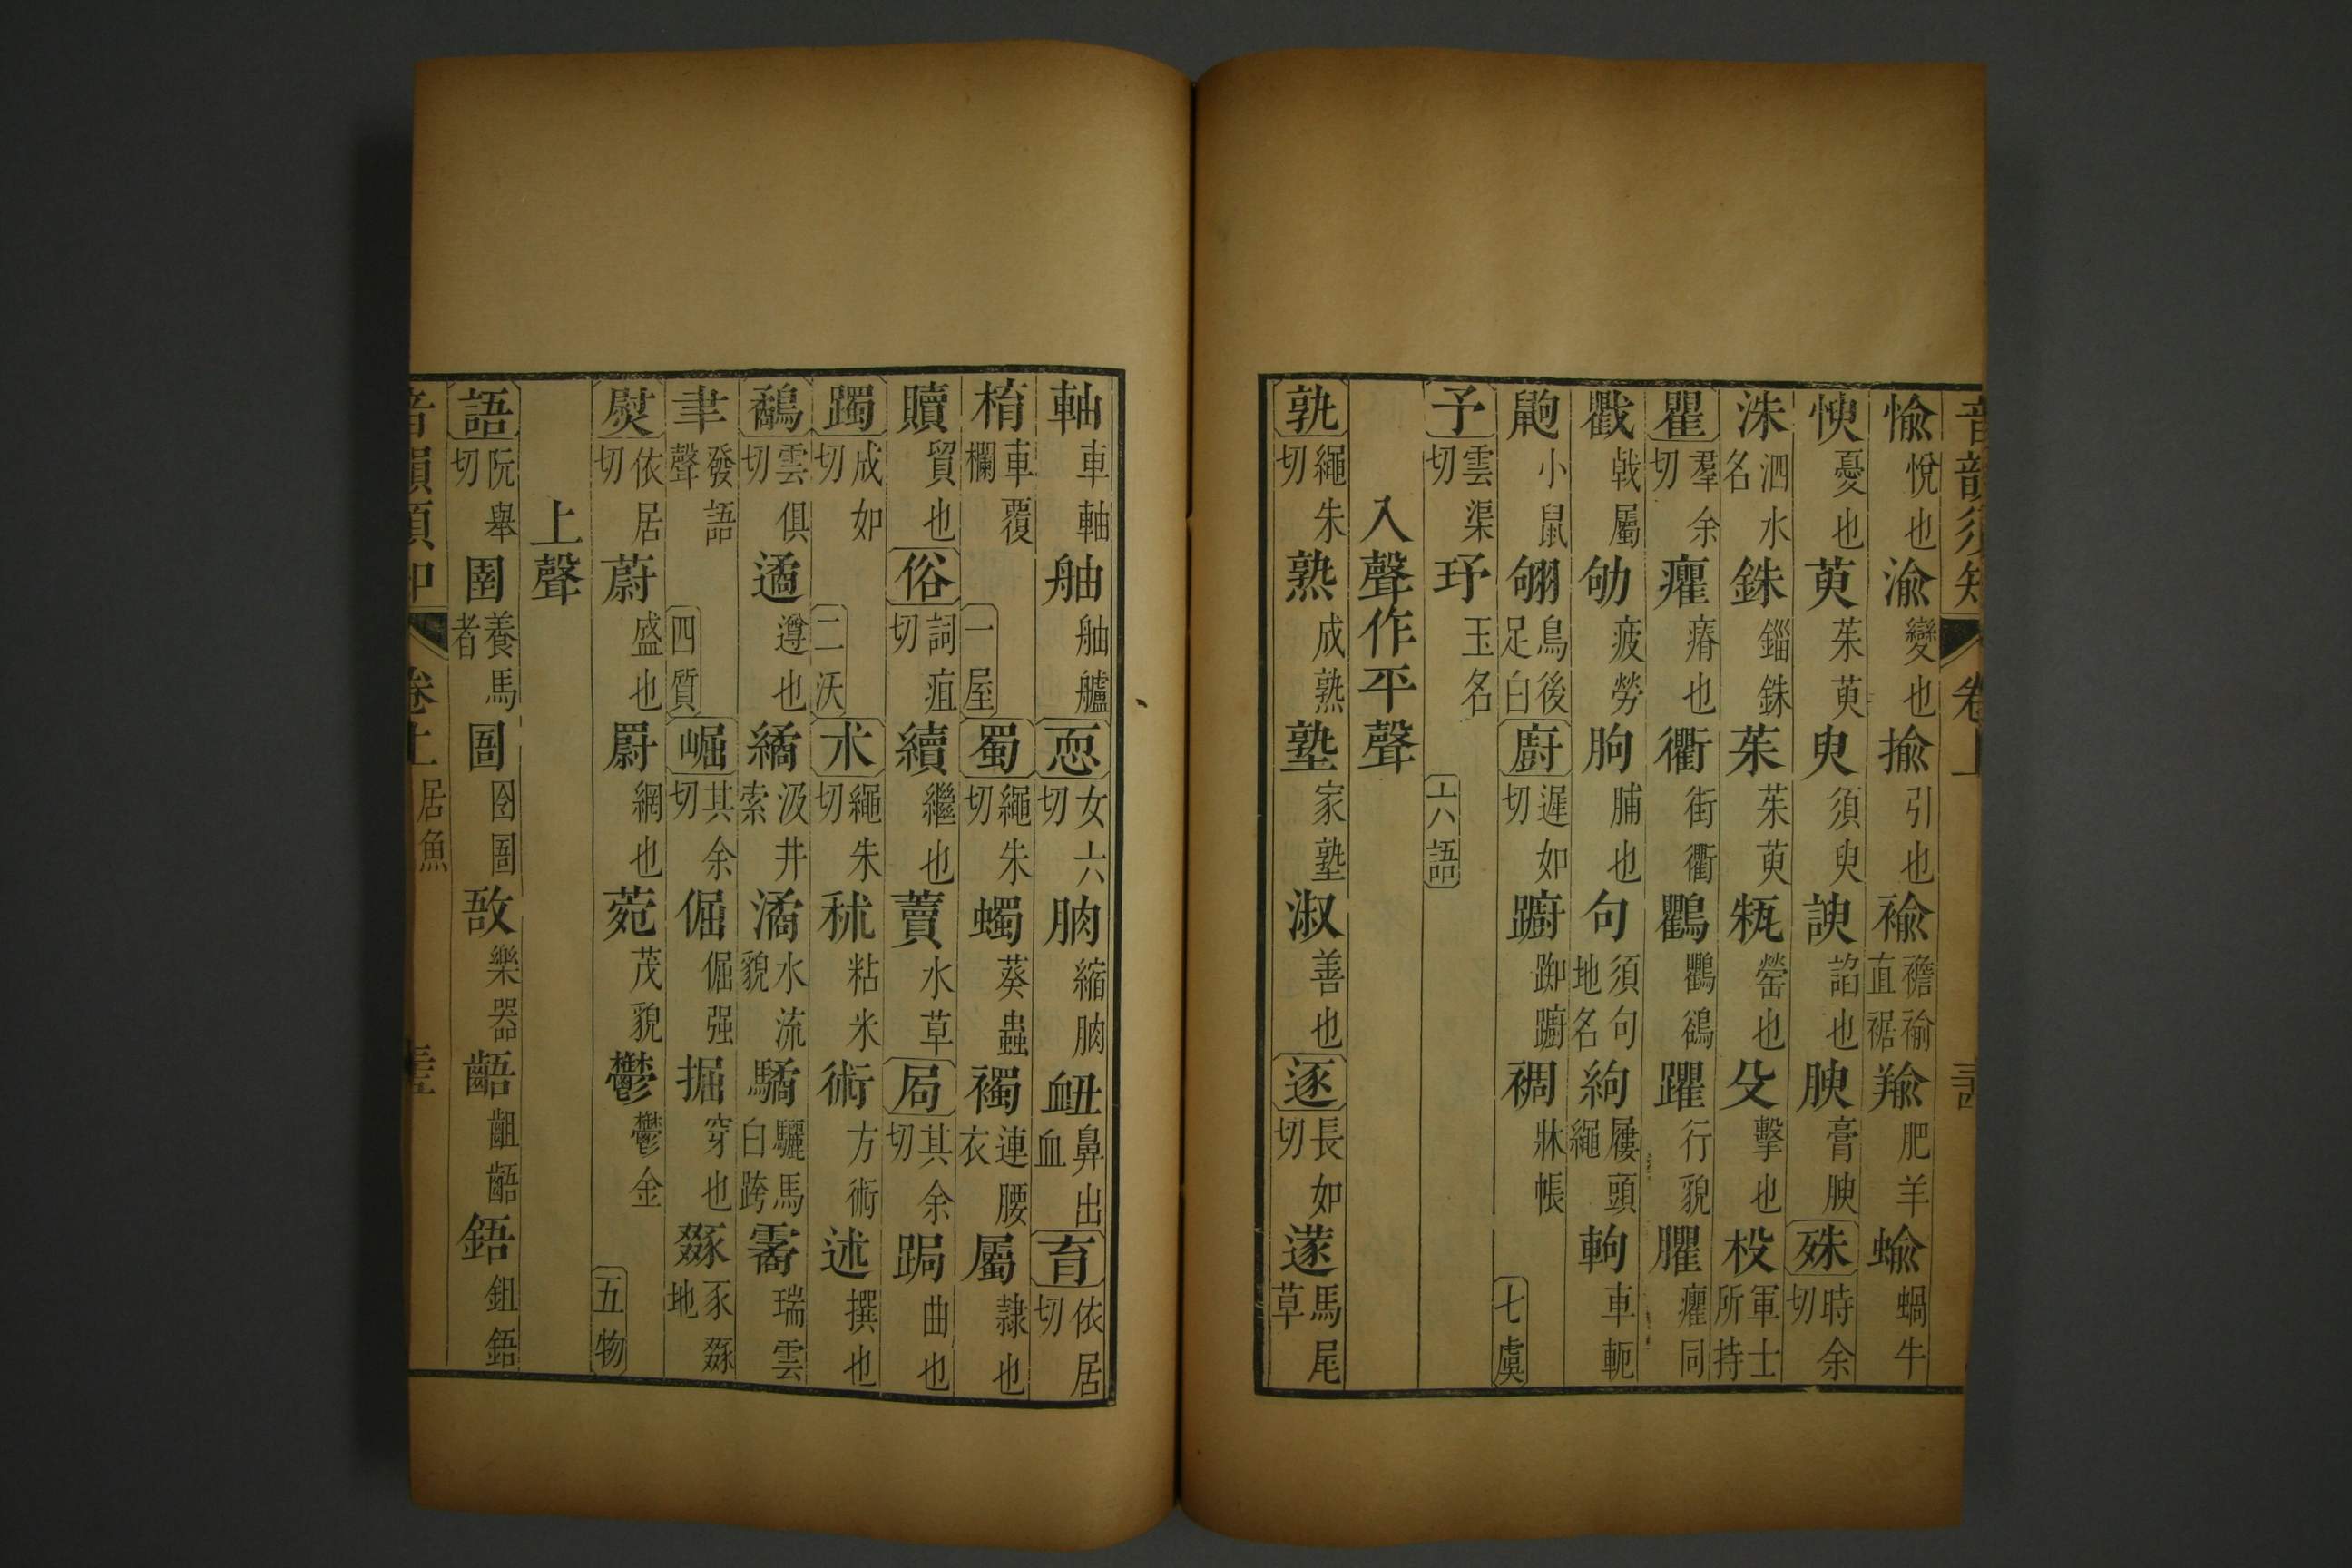 音韻須知 卷上
愉悅也渝變也揄引也褕襜褕直裾羭肥羊蝓蝸牛
㥚憂也萸茱萸臾須臾諛諂也腴膏腴殊時余切
洙泗水名銖錙銖茱茱萸瓻罃也殳擊也杸軍士所持
瞿羣余切癯瘠也衢街衢鸜鸜鵒躣行貌臞癯同
戵戟屬劬疲勞朐脯也句須句地名絇屨頭繩軥車軛
鼩小鼠翑鳥後足白廚遲如切躕踟躕裯牀帳 七虞
予雲渠切玗玉名 六語
入聲作平聲
孰繩朱切熟成熟塾家塾淑善也逐長如切蓫馬尾草
軸車軸舳舳艫恧女六切朒縮朒衄鼻出血育依居切
楕車覆欄 一屋 蜀繩朱切蠋葵蟲襡連腰衣屬隸也
贖貿也俗詞疽切續繼也藚水草局其余切跼曲也
躅成如切 二沃 朮繩朱切秫粘米術方術述撰也
鷸雲俱切遹遵也繘汲井索潏水流貌驈驪馬白跨霱瑞雲
聿發語聲 四質 崛其余切倔倔强掘穿也豩豕豩地
熨依居切蔚盛也罻網也菀茂貌鬱鬱金 五物
上聲
語阮舉切圉養馬者圄囹圄敔樂器齬齟齬鋙鉏鋙
音韻須知 卷上 居魚